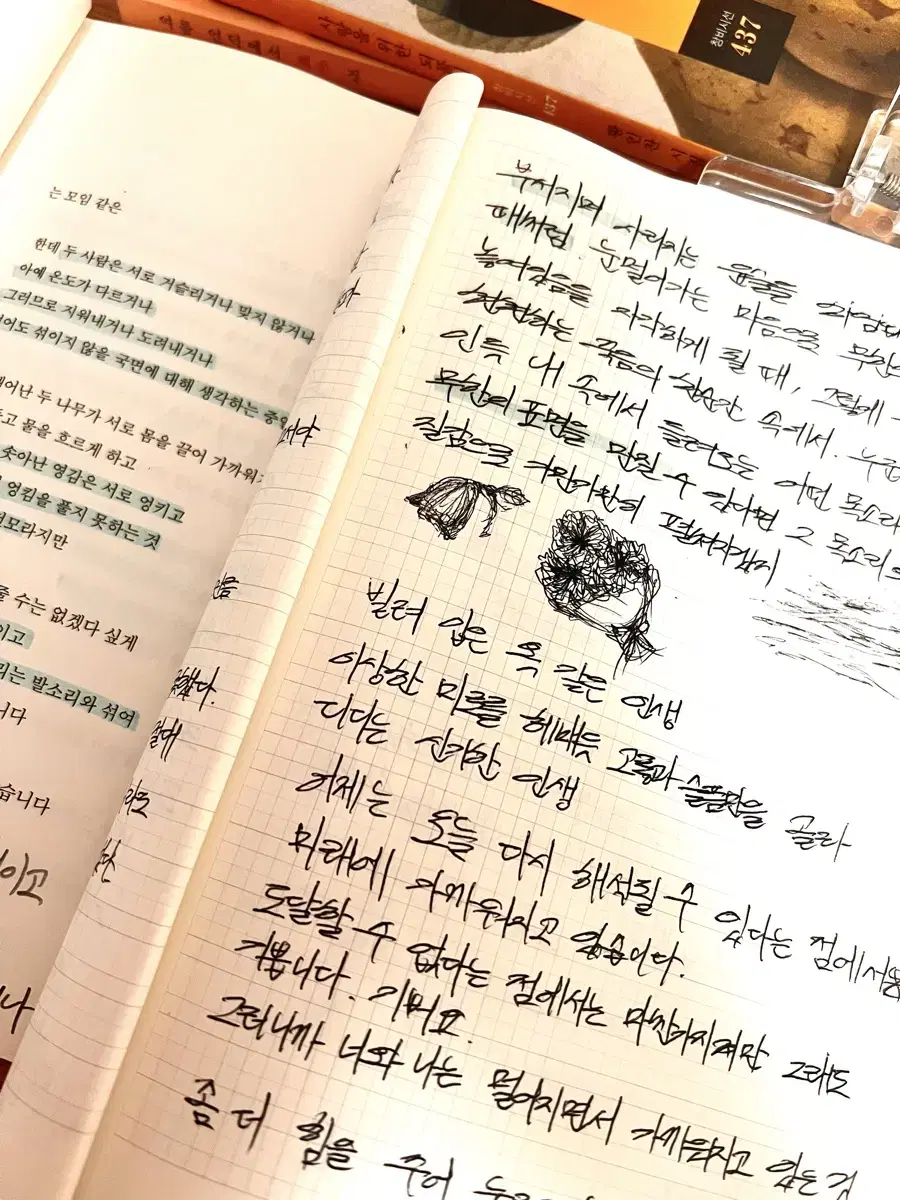 창비시선
437
사람을 위한 되풀
창비시선 437
황인찬 시
는 모임 같은
한데 두 사람은 서로 거슬리거나 맞지 않거나
아예 온도가 다르거나
그러므로 지워내거나 도려내거나
어도 섞이지 않을 국면에 대해 생각하는 중
어난 두 나무가 서로 몸을 끌어 가까워
고 물을 흐르게 하고
솟아난 영감은 서로 엉키고
엉킴을 풀지 못하는 것
모라지만
줄 수는 없겠다 싶게
이고
리는 발소리와 섞여
니다
습니다
이고
나
서야
했다.
부서지며 사라지는 윤슬들
때처럼. 눈멀어가는 마음으로 무한
놓여있음을 자각하게 될 때, 그렇게
찬란하는 죽음의 한순간 속에서. 누군
인듯 내 속에서 들려오는 어떤 목소리
무한의 표면을 만질 수 있다면 그 목소리의
질감으로 가만가만히 펼쳐지겠지
빌려 입은 옷 같은 인생
이상한 미로를 헤매듯 고통과 슬픔만을 골라
디디는 신기한 인생
어제는 오늘 다시 해석될 수 있다는 점에서
미래에 가까워지고 있습니다.
도달할 수 없다는 점에서는 마찬가지지만 그래도
기쁩니다. 기뻐요.
그러니까 너와 나는 멀어지면서 가까워지고 있는 것
좀 더 힘을 주어